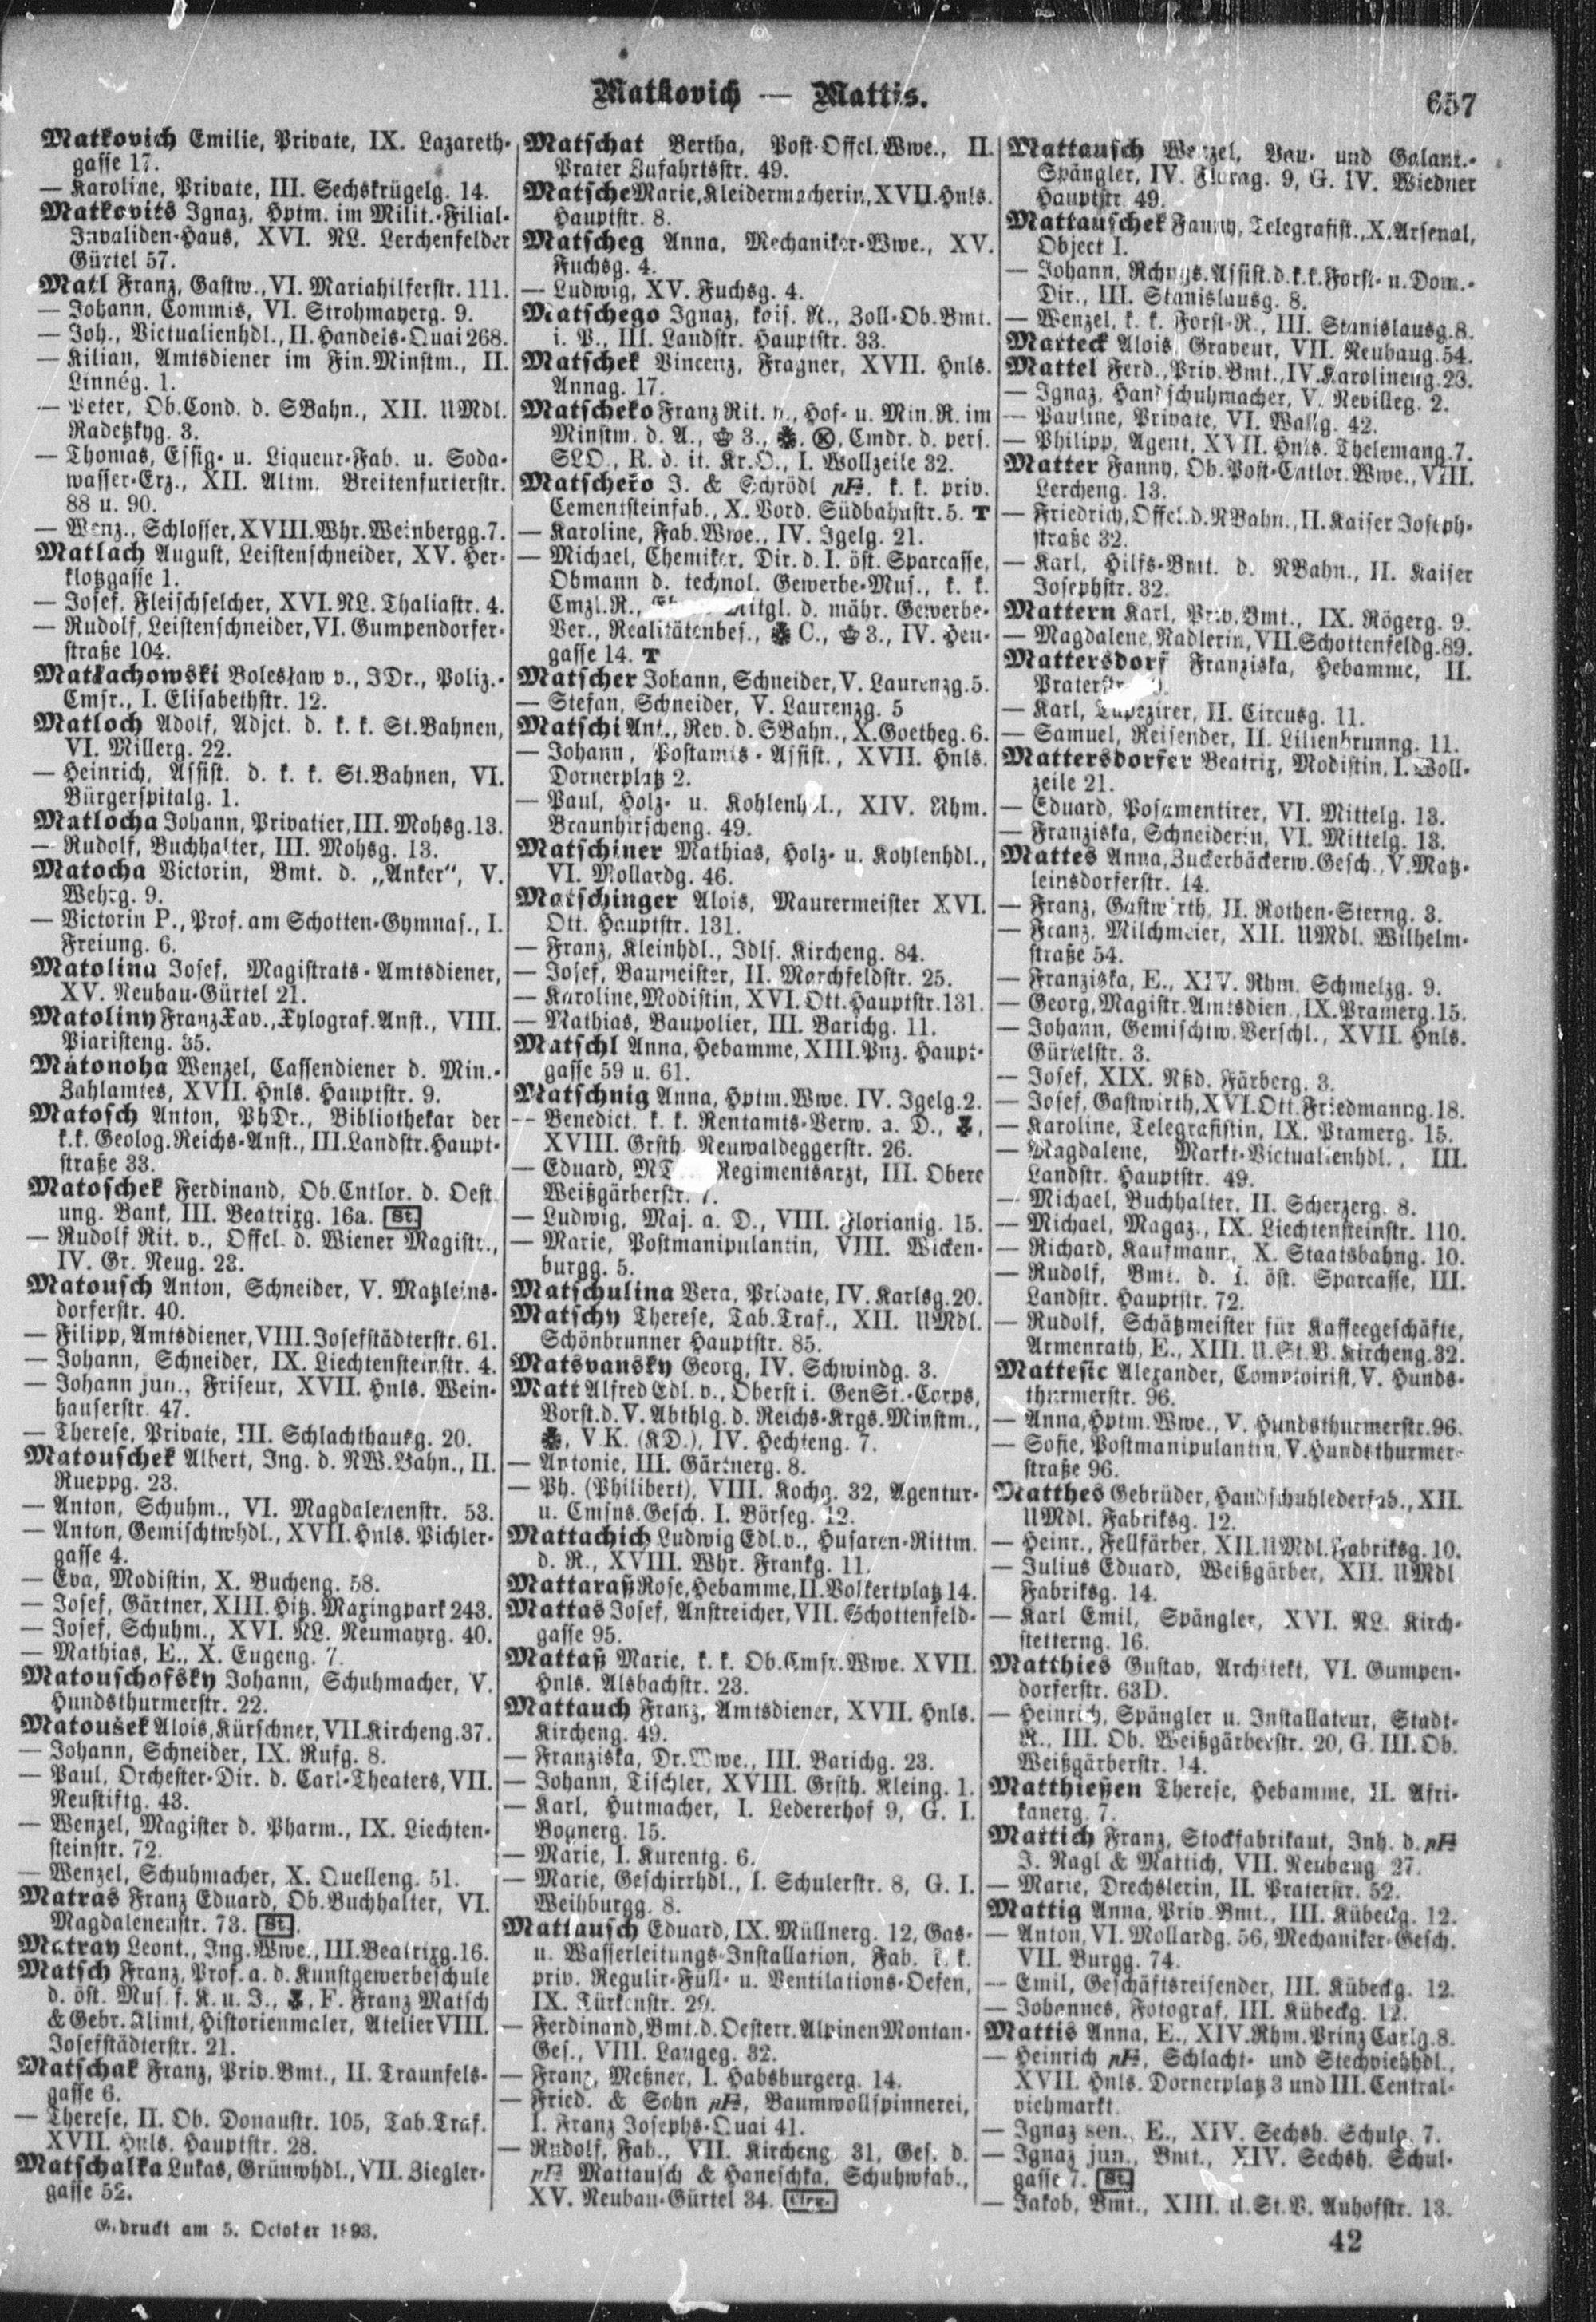 Matkovich — Mattis.
657
Matkovich Emilie, Private, IX. Lazareth-
gasse 17.
— Karoline, Private, III. Sechskrügelg. 14.
Matkovits Ignaz, Hptm. im Milit.-Filial-
Invaliden-Haus, XVI. NL. Lerchenfelder
Gürtel 57.
Matl Franz, Gastw., VI. Mariahilferstr. 111.
— Johann, Commis, VI. Strohmayerg. 9.
— Joh., Victualienhdl., II. Handels-Quai 268.
— Kilian, Amtsdiener im Fin.Minstm., II.
Linnég. 1.
— Peter, Ob.Cond. d. SBahn., XII. UMdl.
Radetzkyg. 3.
— Thomas, Essig- u. Liqueur-Fab. u. Soda-
wasser-Erz., XII. Altm. Breitenfurterstr.
88 u. 90.
— Wenz., Schlosser, XVIII. Whr. Weinbergg. 7.
Matlach August, Leistenschneider, XV. Her-
klotzgasse 1.
— Josef, Fleischselcher, XVI. NL. Thaliastr. 4.
— Rudolf, Leistenschneider, VI. Gumpendorfer-
straße 104.
Matłachowski Bolesław v., JDr., Poliz.-
Cmsr., I. Elisabethstr. 12.
Matloch Adolf, Adjct. d. k. k. St.Bahnen,
VI. Millerg. 22.
— Heinrich, Assist. d. k. k. St.Bahnen, VI.
Bürgerspitalg. 1.
Matlocha Johann, Privatier, III. Mohsg. 13.
— Rudolf, Buchhalter, III. Mohsg. 13.
Matocha Victorin, Bmt. d. „Anker“, V.
Wehrg. 9.
— Victorin P., Prof. am Schotten-Gymnas., I.
Freiung. 6.
Matolina Josef, Magistrats-Amtsdiener,
XV. Neubau-Gürtel 21.
Matoliny Franz Xav., Xylograf. Anst., VIII.
Piaristeng. 35.
Matonoha Wenzel, Cassendiener d. Min.-
Zahlamtes, XVII. Hnls. Hauptstr. 9.
Matosch Anton, PhDr., Bibliothekar der
k.k. Geolog. Reichs-Anst., III. Landstr. Haupt-
straße 33.
Matoschek Ferdinand, Ob.Cntlor. d. Oest.
ung. Bank, III. Beatrixg. 16a. St.
— Rudolf Rit. v., Offcl. d. Wiener Magistr.,
IV. Gr. Neug. 23.
Matousch Anton, Schneider, V. Matzleins-
dorferstr. 40.
— Filipp, Amtsdiener, VIII. Josefstädterstr. 61.
— Johann, Schneider, IX. Liechtensteinstr. 4.
— Johann jun., Friseur, XVII. Hnls. Wein-
hauserstr. 47.
— Therese, Private, III. Schlachthausg. 20.
Matouschek Albert, Ing. d. NW.Bahn., II.
Rueppg. 23.
— Anton, Schuhm., VI. Magdalenenstr. 53.
— Anton, Gemischtwhdl., XVII. Hnls. Pichler-
gasse 4.
— Eva, Modistin, X. Bucheng. 58.
— Josef, Gärtner, XIII. Hitz. Maxingpark 243.
— Josef, Schuhm., XVI. NL. Neumayrg. 40.
— Mathias, E., X. Eugeng. 7.
Matouschofsky Johann, Schuhmacher, V.
Hundsthurmerstr. 22.
Matoušek Alois, Kürschner, VII. Kircheng. 37.
— Johann, Schneider, IX. Rufg. 8.
— Paul, Orchester-Dir. d. Carl-Theaters, VII.
Neustiftg. 43.
— Wenzel, Magister d. Pharm., IX. Liechten-
steinstr. 72.
— Wenzel, Schuhmacher, X. Quelleng. 51.
Matras Franz Eduard, Ob.Buchhalter, VI.
Magdalenenstr. 73. St.
Matray Leont., Ing.Wwe., III. Beatrixg. 16.
Matsch Franz, Prof. a. d. Kunstgewerbeschule
d. öst. Mus. f. K. u. J., F. Franz Matsch
& Gebr. Klimt, Historienmaler, Atelier VIII.
Josefstädterstr. 21.
Matschak Franz, Priv.Bmt., II. Traunfels-
gasse 6.
— Therese, II. Ob. Donaustr. 105, Tab.Traf.
XVII. Hnls. Hauptstr. 28.
Matschalka Lukas, Grünwhdl., VII. Ziegler-
gasse 52.
Gedruckt am 5. October 1893.
Matschat Bertha, Post-Offcl.Wwe., II.
Prater Zufahrtsstr. 49.
Matsche Marie, Kleidermacherin, XVII. Hnls.
Hauptstr. 8.
Matscheg Anna, Mechaniker-Wwe., XV.
Fuchsg. 4.
— Ludwig, XV. Fuchsg. 4.
Matschego Ignaz, kais. R., Zoll-Ob.Bmt.
i. P., III. Landstr. Hauptstr. 33.
Matschek Vincenz, Fragner, XVII. Hnls.
Annag. 17.
Matscheko Franz Rit. v., Hof- u. Min.R. im
Minstm. d. A., 3., Cmdr. d. pers.
SLO., R. d. it. Kr.O., I. Wollzeile 32.
Matscheko J. & Schrödl pFt, k. k. priv.
Cementsteinfab., X. Vord. Südbahnstr. 5. T
— Karoline, Fab.Wwe., IV. Igelg. 21.
— Michael, Chemiker, Dir. d. I. öst. Sparcasse,
Obmann d. technol. Gewerbe-Mus., k. k.
Cmzl.R., Mitgl. d. mähr. Gewerbe-
Ver., Realitätenbes., C., 3., IV. Heu-
gasse 14. T
Matscher Johann, Schneider, V. Laurenzg. 5.
— Stefan, Schneider, V. Laurenzg. 5
Matschi Ant., Rev. d. SBahn., X. Goetheg. 6.
— Johann, Postamts-Assist., XVII. Hnls.
Dornerplatz 2.
— Paul, Holz- u. Kohlenhdl., XIV. Rhm.
Braunhirscheng. 49.
Matschiner Mathias, Holz- u. Kohlenhdl.,
VI. Mollardg. 46.
Matschinger Alois, Maurermeister XVI.
Ott. Hauptstr. 131.
— Franz, Kleinhdl., Jdls. Kircheng. 84.
— Josef, Baumeister, II. Marchfeldstr. 25.
— Karoline, Modistin, XVI. Ott. Hauptstr. 131.
— Mathias, Baupolier, III. Barichg. 11.
Matschl Anna, Hebamme, XIII. Pnz. Haupt-
gasse 59 u. 61.
Matschnig Anna, Hptm.Wwe. IV. Igelg. 2.
— Benedict. k. k. Rentamts-Verw. a. D.,
XVIII. Grsth. Neuwaldeggerstr. 26.
— Eduard, Regimentsarzt, III. Obere
Weißgärberstr. 7.
— Ludwig, Maj. a. D., VIII. Florianig. 15.
— Marie, Postmanipulantin, VIII. Wicken-
burgg. 5.
Matschulina Vera, Private, IV. Karlsg. 20.
Matschy Therese, Tab.Traf., XII. UMdl.
Schönbrunner Hauptstr. 85.
Matsvansky Georg, IV. Schwindg. 3.
Matt Alfred Edl. v., Oberst i. GenSt.-Corps,
Vorst. d. V. Abthlg. d. Reichs-Krgs.Minstm.,
V.K. (KD.), IV. Hechteng. 7.
— Antonie, III. Gärtnerg. 8.
— Ph. (Philibert), VIII. Kochg. 32, Agentur-
u. Cmsns.Gesch. I. Börseg. 12.
Mattachich Ludwig Edl. v., Husaren-Rittm.
d. R., XVIII. Whr. Frankg. 11.
Mattaraß Rose, Hebamme, II. Volkertplatz 14.
Mattas Josef, Anstreicher, VII. Schottenfeld-
gasse 95.
Mattaß Marie, k. k. Ob.Cmsr.Wwe. XVII.
Hnls. Alsbachstr. 23.
Mattauch Franz, Amtsdiener, XVII. Hnls.
Kircheng. 49.
— Franziska, Dr.Wwe., III. Barichg. 23.
— Johann, Tischler, XVIII. Grsth. Kleing. 1.
— Karl, Hutmacher, I. Ledererhof 9, G. I.
Bognerg. 15.
— Marie, I. Kurentg. 6.
— Marie, Geschirrhdl., I. Schulerstr. 8, G. I.
Weihburgg. 8.
Mattausch Eduard, IX. Müllnerg. 12, Gas-
u. Wasserleitungs-Installation, Fab. k. k.
priv. Regulir-Füll- u. Ventilations-Oefen,
IX. Türkenstr. 29.
— Ferdinand, Bmt. d. Oesterr. Alpinen Montan-
Ges., VIII. Langeg. 32.
— Franz, Meßner, I. Habsburgerg. 14.
— Fried. & Sohn pFt, Baumwollspinnerei,
I. Franz Josephs-Quai 41.
— Rudolf, Fab., VII. Kircheng. 31, Ges. d.
pFt Mattausch & Haneschka, Schuhwfab.,
XV. Neubau-Gürtel 34.
Mattausch Wenzel, Bau- und Galant.-
Spängler, IV. Florag. 9, G. IV. Wiedner
Hauptstr. 49.
Mattauschek Fanny, Telegrafist., X. Arsenal,
Object I.
— Johann, Rchngs.Assist. d. k. k. Forst- u. Dom.-
Dir., III. Stanislausg. 8.
— Wenzel, k. k. Forst-R., III. Stanislausg. 8.
Matteck Alois, Graveur, VII. Neubaug. 54.
Mattel Ferd., Priv.Bmt., IV. Karolineng. 23.
— Ignaz, Handschuhmacher, V. Nevilleg. 2.
— Pauline, Private, VI. Wallg. 42.
— Philipp, Agent, XVII. Hnls. Thelemang. 7.
Matter Fanny, Ob.Post-Cntlor.Wwe., VIII.
Lercheng. 13.
— Friedrich, Offcl. d. NBahn., II. Kaiser Joseph-
straße 32.
— Karl, Hilfs-Bmt. d. NBahn., II. Kaiser
Josephstr. 32.
Mattern Karl, Priv.Bmt., IX. Rögerg. 9.
— Magdalene, Nadlerin, VII. Schottenfeldg. 89.
Mattersdorf Franziska, Hebamme, II.
Praterstr.
— Karl, Tapezirer, II. Circusg. 11.
— Samuel, Reisender, II. Lilienbrunng. 11.
Mattersdorfer Beatrix, Modistin, I. Woll-
zeile 21.
— Eduard, Posamentirer, VI. Mittelg. 13.
— Franziska, Schneiderin, VI. Mittelg. 13.
Mattes Anna, Zuckerbäckerw.Gesch., V. Matz-
leinsdorferstr. 14.
— Franz, Gastwirth, II. Rothen-Sterng. 3.
— Franz, Milchmeier, XII. UMdl. Wilhelm-
straße 54.
— Franziska, E., XIV. Rhm. Schmelzg. 9.
— Georg, Magistr.Amtsdien., IX. Pramerg. 15.
— Johann, Gemischtw.Verschl., XVII. Hnls.
Gürtelstr. 3.
— Josef, XIX. Nßd. Färberg. 3.
— Josef, Gastwirth, XVI. Ott. Friedmanng. 18.
— Karoline, Telegrafistin, IX. Pramerg. 15.
— Magdalene, Markt-Victualienhdl., III.
Landstr. Hauptstr. 49.
— Michael, Buchhalter, II. Scherzerg. 8.
— Michael, Magaz., IX. Liechtensteinstr. 110.
— Richard, Kaufmann, X. Staatsbahng. 10.
— Rudolf, Bmt. d. I. öst. Sparcasse, III.
Landstr. Hauptstr. 72.
— Rudolf, Schätzmeister für Kaffeegeschäfte,
Armenrath, E., XIII. U.St.V. Kircheng. 32.
Mattesic Alexander, Comptoirist, V. Hunds-
thurmerstr. 96.
— Anna, Hptm.Wwe., V. Hundsthurmerstr. 96.
— Sofie, Postmanipulantin, V. Hundsthurmer-
straße 96.
Matthes Gebrüder, Handschuhlederfab., XII.
UMdl. Fabriksg. 12.
— Heinr., Fellfärber, XII. UMdl. Fabriksg. 10.
— Julius Eduard, Weißgärber, XII. UMdl
Fabriksg. 14.
— Karl Emil, Spängler, XVI. NL. Kirch-
stetterng. 16.
Matthies Gustav, Architekt, VI. Gumpen-
dorferstr. 63D.
— Heinrich, Spängler u. Installateur, Stadt-
R., III. Ob. Weißgärberstr. 20, G. III. Ob.
Weißgärberstr. 14.
Matthießen Therese, Hebamme, II. Afri-
kanerg. 7.
Mattich Franz, Stockfabrikant, Inh. d. pFt
J. Nagl & Mattich, VII. Neubaug 27.
— Marie, Drechslerin, II. Praterstr. 52.
Mattig Anna, Priv.Bmt., III. Kübeckg. 12.
— Anton, VI. Mollardg. 56, Mechaniker-Gesch.
VII. Burgg. 74.
— Emil, Geschäftsreisender, III. Kübeckg. 12.
— Johannes, Fotograf, III. Kübeckg. 12.
Mattis Anna, E., XIV. Rhm. Prinz Carlg. 8.
— Heinrich pFt, Schlacht- und Stechviehhdl.,
XVII. Hnls. Dornerplatz 3 und III. Central-
viehmarkt.
— Ignaz sen., E., XIV. Sechsh. Schulg. 7.
— Ignaz jun., Bmt., XIV. Sechsh. Schul-
gasse 7. St.
— Jakob, Bmt., XIII. U.St.V. Auhofstr. 13.
42